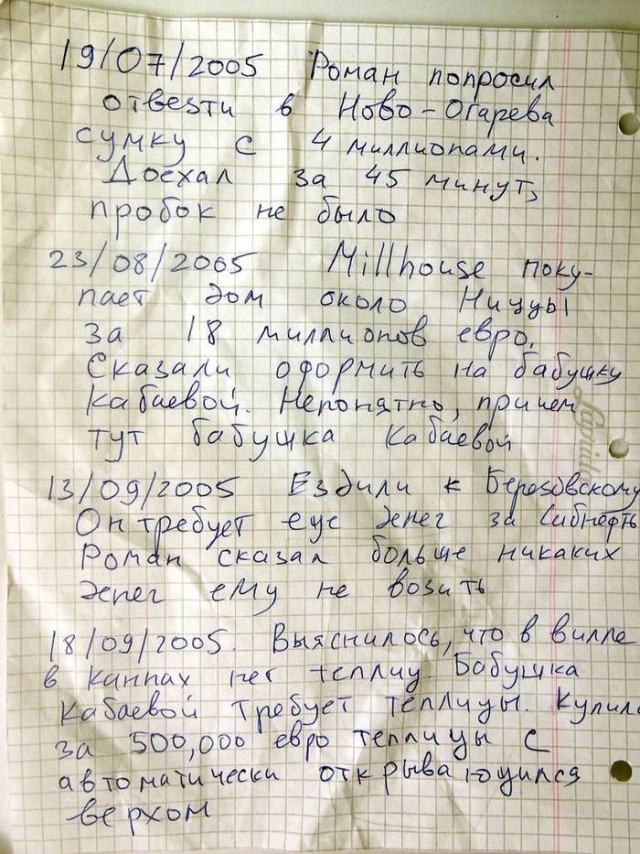 19/07/2005 Роман попросил
отвезти в Ново-Огарева
сумку с 4 миллионами.
Доехал за 45 минут,
пробок не было
23/08/2005 Millhouse поку-
пает дом около Ниццы
за 18 миллионов евро.
Сказали оформить на бабушку
Кабаевой. Непонятно, причем
тут бабушка Кабаевой
13/09/2005 Ездили к Березовскому
Он требует еще денег за Сибнефть
Роман сказал больше никаких
денег ему не возить
18/09/2005. Выяснилось, что в вилле
в Каннах нет теплиц. Бабушка
Кабаевой требует теплицы. Купили
за 500,000 евро теплицы с
автоматически открывающимся
верхом